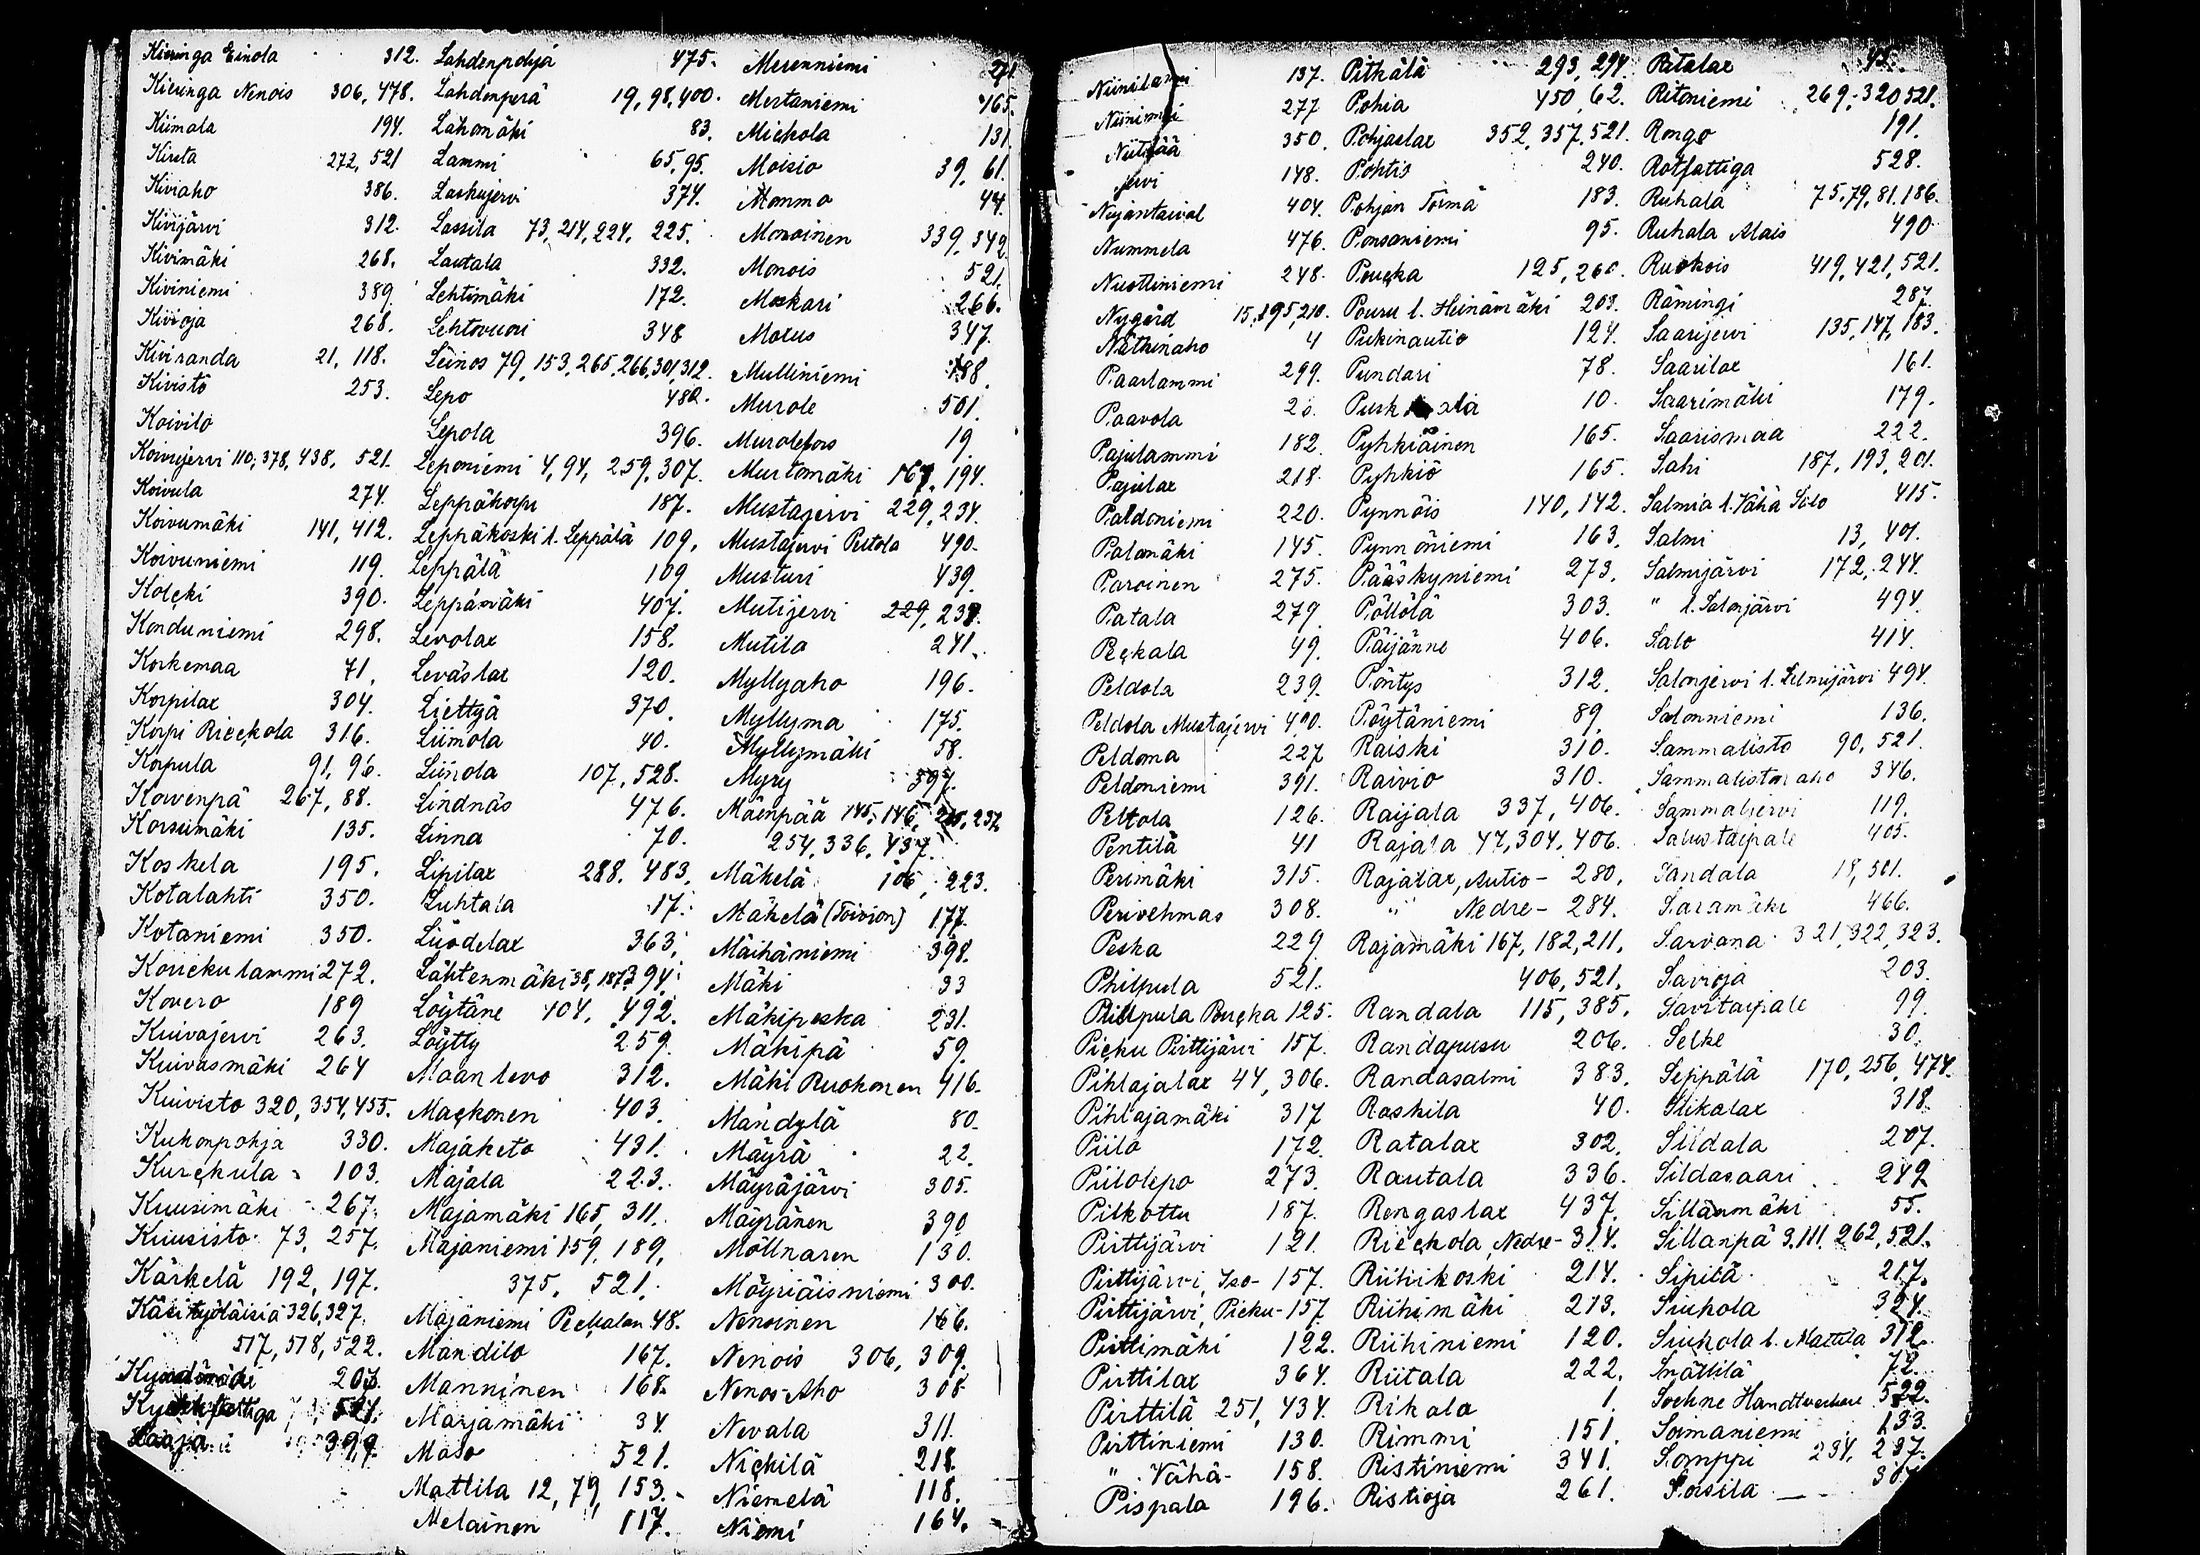 Kieringa Einola 312.
Kieringa Nenois 306, 478.
Kiimala 194.
Kirsta 272, 521
Kiviaho 386.
Kivijärvi 312.
Kivimäki 268.
Kiviniemi 389.
Kivioja 268.
Kiviranda 21, 118.
Kivistö 253.
Koivilo
Koivujervi 110, 378, 438, 521.
Koivula 274.
Koivumäki 141, 412.
Koivuniemi 119.
Kolcki 390.
Konduniemi 298.
Korkemaa 71.
Korpilax 304.
Korpi Rieckola 316.
Korpula 91, 96.
Korvenpä 267, 88.
Korsumäki 135.
Koskela 195.
Kotalahti 350.
Kotaniemi 350.
Kouckulammi 272.
Kovero 189
Kuivajervi 263.
Kuivasmäki 264
Kuivisto 320, 354, 455.
Kukonpohja 330.
Kurckula 103.
Kuusimäki 267.
Kuusisto 73, 257.
Kärkelä 192, 197.
Käsityöläisiä 326, 327.
517, 518, 522.
399.
Lahdenpohja 475.
Lahdenperä 19, 98, 400.
Lahomäki 83.
Lammi 65, 95.
Laskujervi 374.
Lassila 73, 214, 224, 225.
Lautala 332.
Lehtimäki 172.
Lehtovuori 348
Leinos 79, 153, 265, 266, 301, 312.
Lepo 482.
Lepola 396.
Leponiemi 4, 94, 259, 307.
Leppäkorpi 187.
Leppäkoski l. Leppälä 109.
Leppälä 109
Leppämäki 407.
Levolax 158.
Leväslax 120.
Liettyä 370.
Liimola 40.
Liinola 107, 528.
Lindnäs 476.
Linna 70.
Lipilax 288. 483.
Luhtala 17.
Luodelax 363.
Lähtenmäki 38, 187, 394.
Löytäne 404, 492.
Löytty 259.
Maanlevo 312.
Mackonen 403.
Majaketo 431.
Majala 223.
Majamäki 165, 311.
Majaniemi 159, 189,
375, 521.
Majaniemi Peckalan 48.
Mandilo 167.
Manninen 168.
Marjamäki 34.
Maso 521.
Mattila 12, 79, 153.
Melainen 117.
Merenniemi 271
Mertaniemi 465.
Mickola 131.
Moisio 39, 61.
Mommo 44.
Monoinen 339, 349.
Monois 521.
Moskari 266.
Motus 347.
Mulliniemi 188.
Murole 501.
Murolefors 19.
Murtomäki 167, 194.
Mustajervi 229, 234.
Mustajervi Peltola 490.
Musturi 439.
Mutijervi 229, 238.
Mutila 241.
Myllyaho 196.
Myllyma 175.
Myllymäki 58.
Myry 397.
Mäenpää 145, 146, 215, 237.
254, 336, 437.
Mäkelä 106, 223.
Mäkelä (Toivion) 177.
Mäihäniemi 398.
Mäki 33
Mäkipeska 231.
Mäkipä 59.
Mäki Ruokonen 416.
Mändylä 80.
Mäyrä 22.
Mäyräjärvi 305.
Mäyränen 390.
Möllnaren 130.
Möyriäisniemi 300.
Nenoinen 166.
Nenois 306, 309.
Nenos-Aho 308
Nevala 311.
Nickilä 218.
Niemelä 118.
Niemi 164.
Niinilammi 137.
Niinimäki 277
350.
148.
Nujantaival 404.
Nummela 476.
Nuottiniemi 248.
Nygård 15, 195, 210.
Nätkinaho 4
Paarlammi 299.
Paavola 20.
Pajulammi 182.
Pajulax 218.
Paldoniemi 220.
Palomäki 145.
Paroinen 275.
Patala 279.
Peckala 49.
Peldola 239.
Peldola Mustajervi 490.
Peldoma 227
Peldoniemi 391.
Peltola 126.
Pentilä 41
Perimäki 315.
Perivehmas 308.
Peska 229
Philpula 521.
Philpula Poucka 125.
Picku Pirttijärvi 157.
Pihlajalax 44, 306.
Pihlajamäki 317
Piilo 172.
Piilolepo 273.
Pilkottu 187.
Pirttijärvi 121.
Pirttijärvi, Iso- 157.
Pirttijärvi, Picku- 157
Pirttimäki 122.
Pirttilax 364.
Pirttilä 251, 434.
Pirttiniemi 130.
" Vähä- 158.
Pispala 196.
Pitkälä 293, 294.
Pohia 450, 62.
Pohjaslax 352, 357, 521.
Pohtio 240.
Pohjan Törmä 183.
Ponsaniemi 95.
Poucka 125, 260.
Pouru l. Heinämäki 203.
Pukinautio 124.
Pundari 78.
10.
Pyhkiäinen 165.
Pyhkiö 165.
Pynnöis 140, 142.
Pynnöniemi 163.
Pääskyniemi 273.
Pöllölä 303.
Päijänne 406.
Pöntys 312.
Pöytäniemi 89.
Raiski 310.
Raivio 310.
Raijala 337, 406.
Rajala 47, 304, 406.
Rajalax, Autio- 280.
" Nedre- 284.
Rajamäki 167, 182, 211,
406, 521.
Randala 115, 385.
Randapusu 206.
Randasalmi 383.
Raskila 40.
Ratalax 302.
Rautala 336.
Rengaslax 437.
Rieckola, Nedre- 314.
Riihikoski 214.
Riihimäki 213.
Riihiniemi 120.
Riitala 222.
Rikala 1.
Rimmi 151.
Ristiniemi 341.
Ristioja 261.
Ritalax 45.
Ritoniemi 269, 320, 521.
Rongo 191.
Rotfattiga 528.
Ruhala 75, 79, 81, 186.
Ruhala Alais 490
Ruokois 419, 421, 521.
Rämingi 287.
Saarijervi 135, 147, 183.
Saarilax 161.
Saarimäki 179.
Saarismaa 222.
Sahi 187, 193, 201.
Salmia l. Vähä Solo 415.
Salmi 13, 401.
Salmijärvi 172, 244.
" l. Salonjärvi 494.
Salo 414.
Salonjervi l. Salmijärvi 494.
Salonniemi 136.
Sammalisto 90, 521.
Sammaliston aho 346.
Sammaljervi 119.
Salustaipale 405.
Sandala 18, 501.
Saramäki 466.
Sarvana 321, 322, 323.
Savioja 203.
Savitaipale 99.
Selke 30.
Seppälä 170, 256, 474.
Siikalax 318.
Sildala 207.
Sildasaari 249
Sillänmäki 55.
Sillanpä 3, 111, 262, 521.
Sipilä 217.
Siukola 324.
Siukola l. Mattila 312.
Snättilä 72.
Sockne Handtverkare 522.
Soimaniemi 133.
Somppi 234, 237.
Sorsila